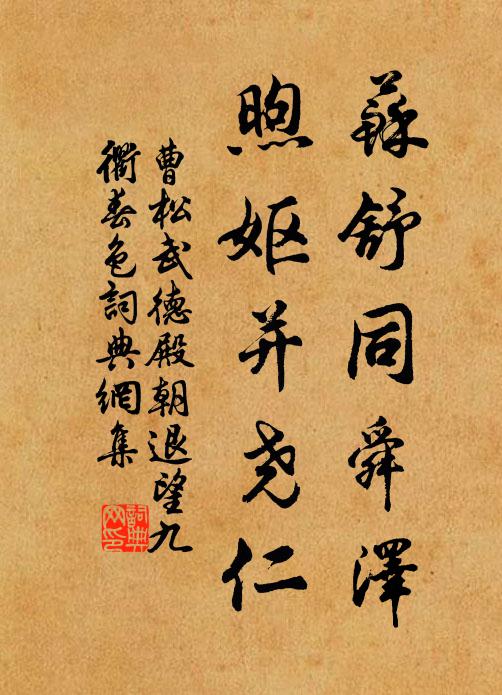 蘇舒同舜澤
煦妪并尧仁
曹松武德殿朝退望九
衢春色詞典網集
詞典网印